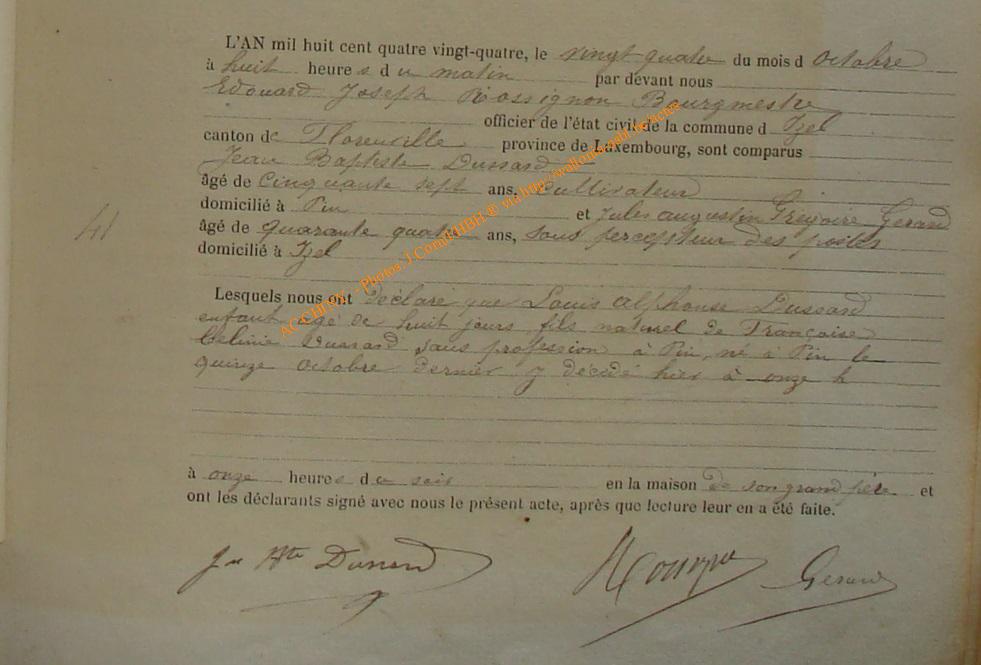 L'AN mil huit cent quatre vingt-quatre, le vingt quatre du mois d Octobre
à huit heures du matin par devant nous
Edouard Joseph Rossignon Bourgmestre
officier de l'état civil de la commune d Izel
canton de Florenville province de Luxembourg, sont comparus
Jean Baptiste Dussard
âgé de Cinquante sept ans, Cultivateur
domicilié à Pin et Jules augustin Grégoire Gerard
41 âgé de quarante quatre ans, sous percepteur des postes
domicilié à Izel
Lesquels nous ont déclaré que Louis alphonse Dussard
enfant agé de huit jours fils naturel de Françoise
Celinie Dussard sans profession à Pin, né à Pin le
quinze octobre dernier y décédé hier à onze h
à onze heures du soir en la maison de son grand père et
ont les déclarants signé avec nous le présent acte, après que lecture leur en a été faite.
Jn Bte Dussard Gerard
ACCHESV. - Photos: J.Cornil HBH ® via http://wallonica